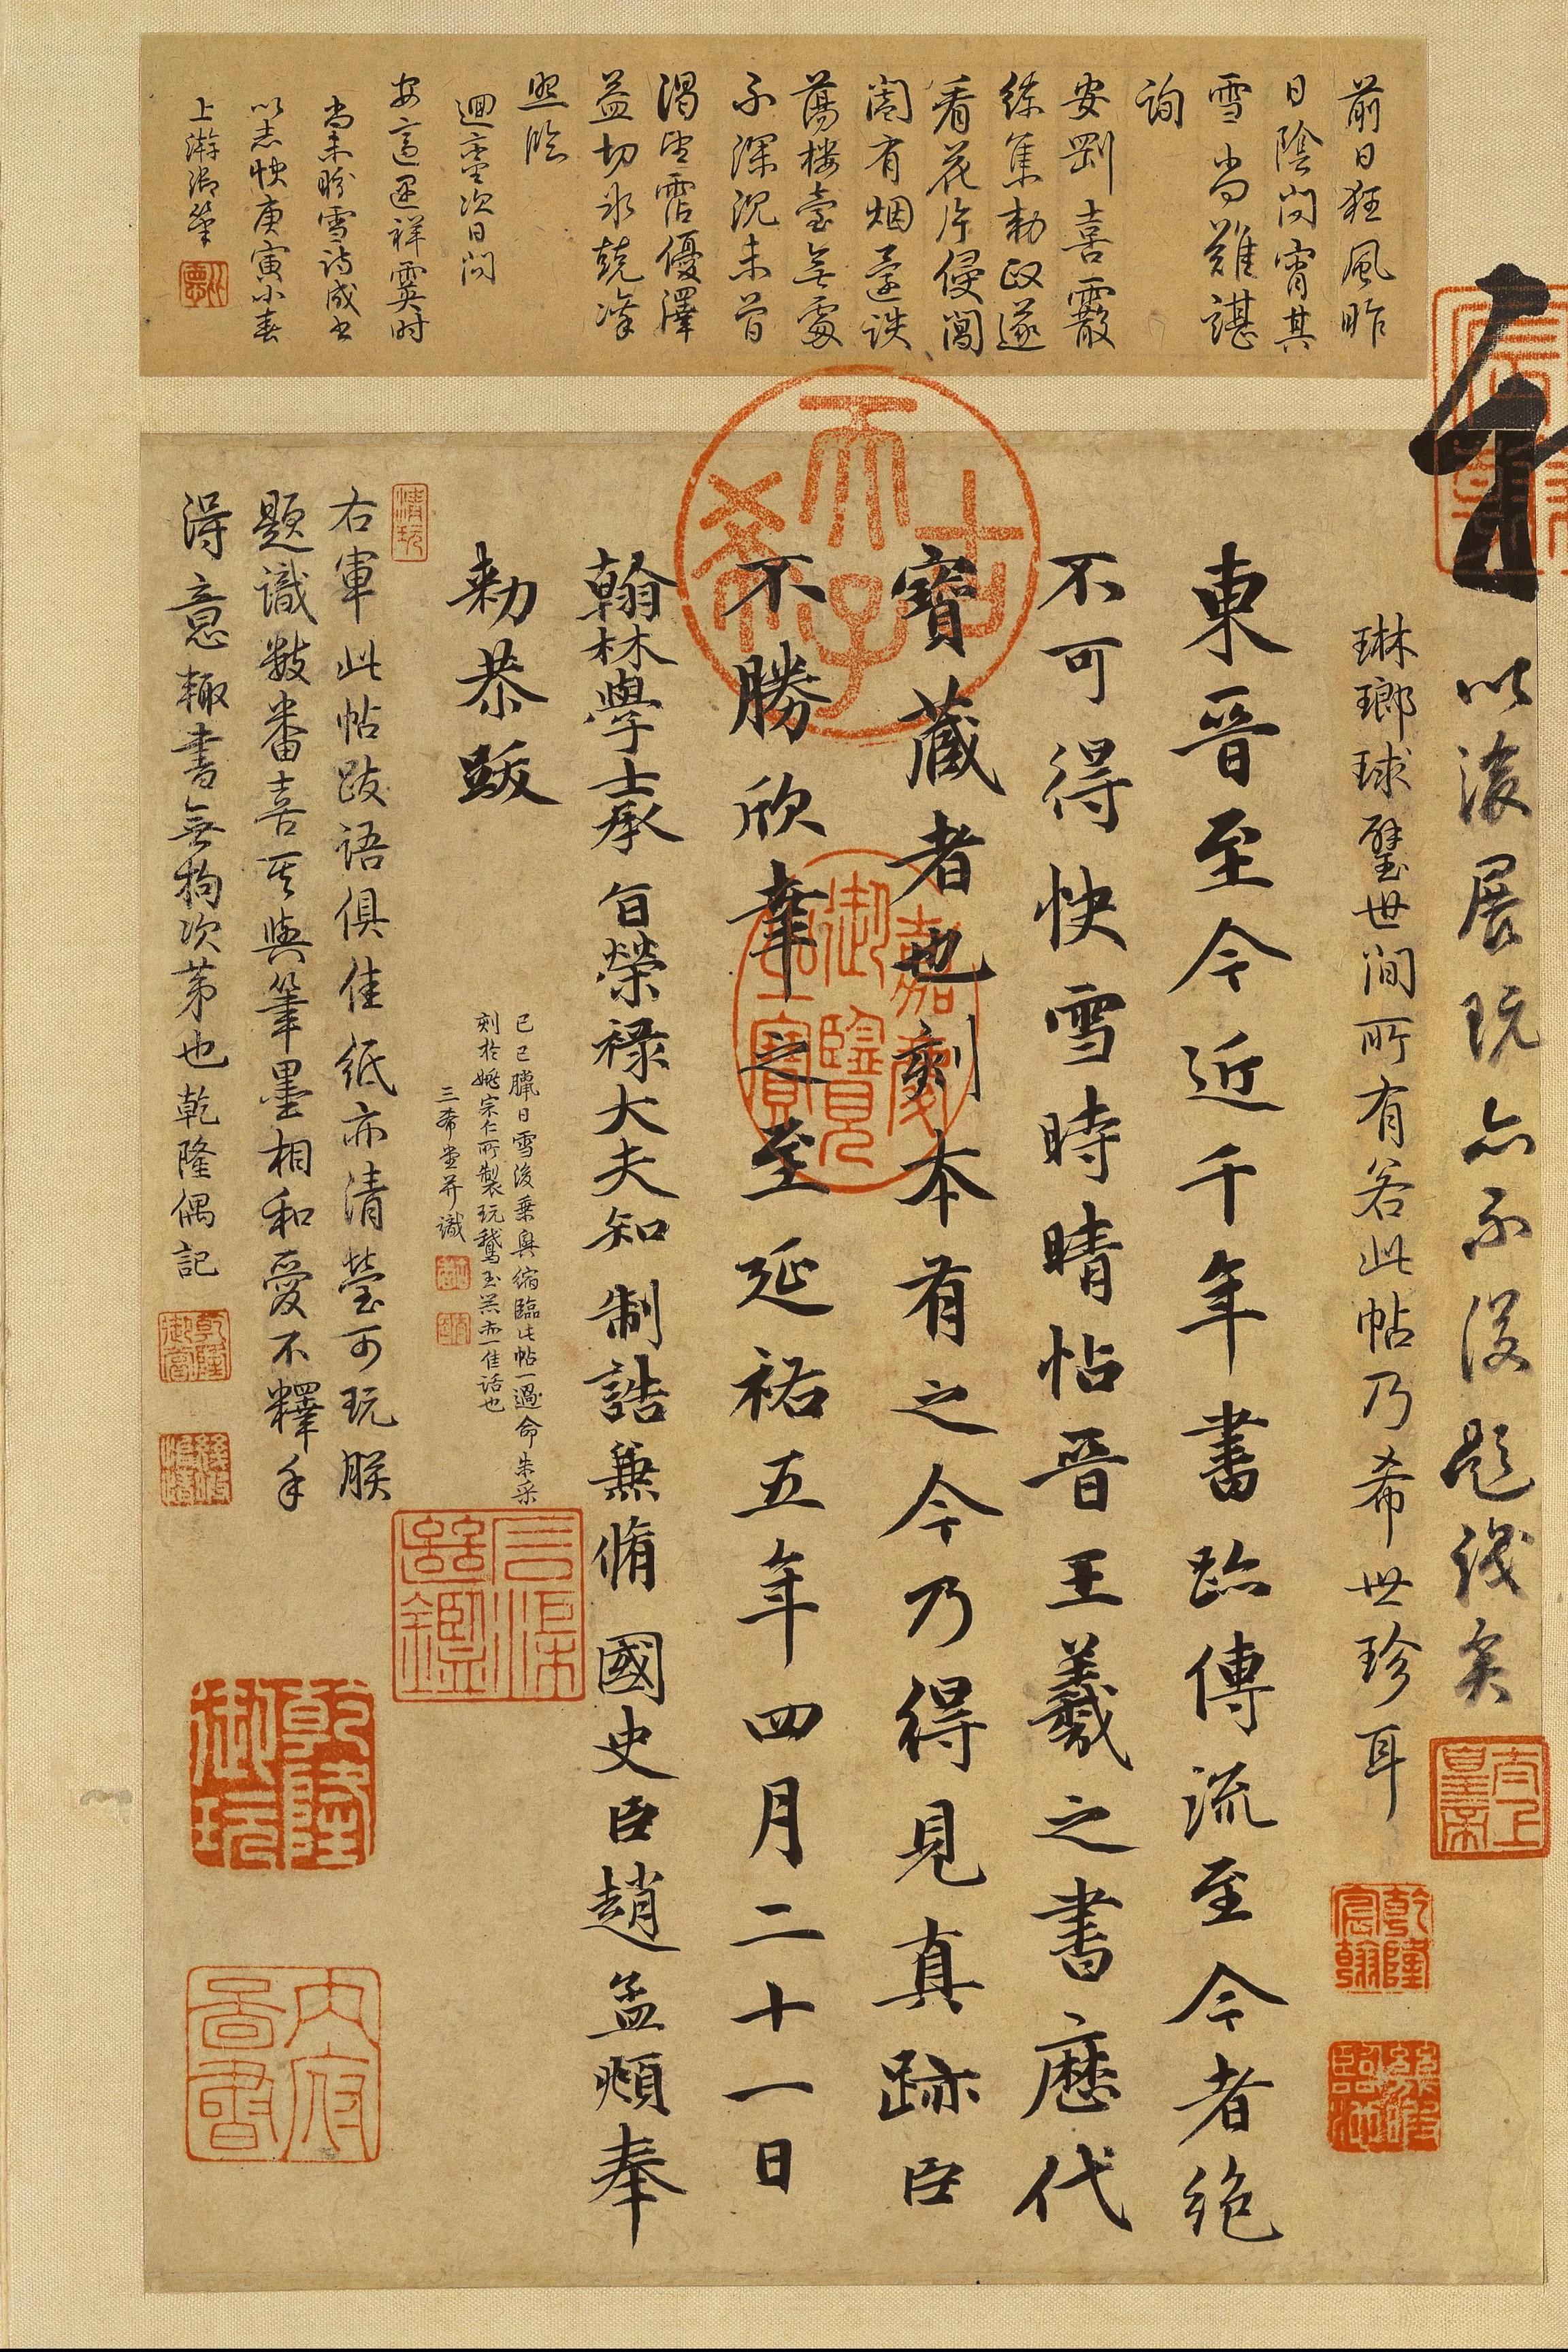 前日狂風昨
日陰問宵其
雪尚難諶
詢
安劉喜霰
綜集勑政遂
看花片侵閣
閤有烟還誤
蕩樓臺無處
不深況未曾
渴望霑優澤
益切冰兢凜
照臨
迴鑾次日問
安適遇祥霙时
尚未盼雪詩成書
以志快庚寅小春
上澣御筆
以後展玩亦不復題識矣
琳瑯球璧世間所有若此帖乃希世珍耳
東晉至今近千年書跡傳流至今者絶
不可得快雪時晴帖晉王羲之書歷代
寶藏者也刻本有之今乃得見真跡臣
不勝欣幸之至延祐五年四月二十一日
翰林學士承旨榮祿大夫知制誥兼脩國史臣趙孟頫奉
勑恭跋
己巳臘日雪後乘興縮臨此帖一過命朱采
刻於姚宗仁所製玩鵞玉器亦一佳話也
三希堂并識
右軍此帖跋語俱佳紙亦清瑩可玩朕
題識數番喜其與筆墨相和愛不釋手
得意輒書無拘次第也乾隆偶記
天子古希
嘉慶御覽之寶
太上皇帝
乾隆宸翰
清玩
乾隆御玩
內府圖書